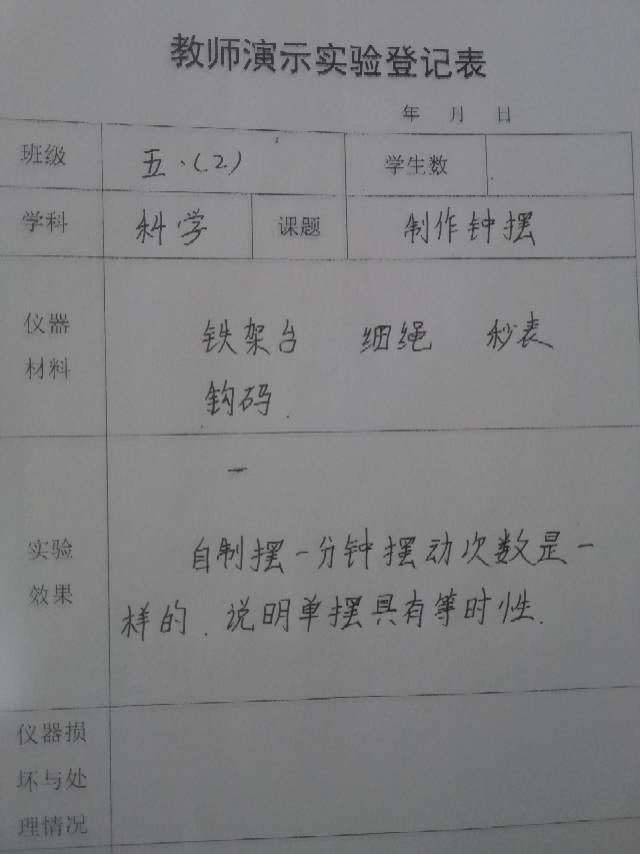 教师演示实验登记表
年 月 日
班级 五、(.2) 学生数
学科 科学 课题 制作钟摆
仪器
材料
铁架台 细绳 秒表
钩码.
一
实验
效果
自制摆一分钟摆动次数是一
样的.说明单摆具有等时性.
仪器损
坏与处
理情况